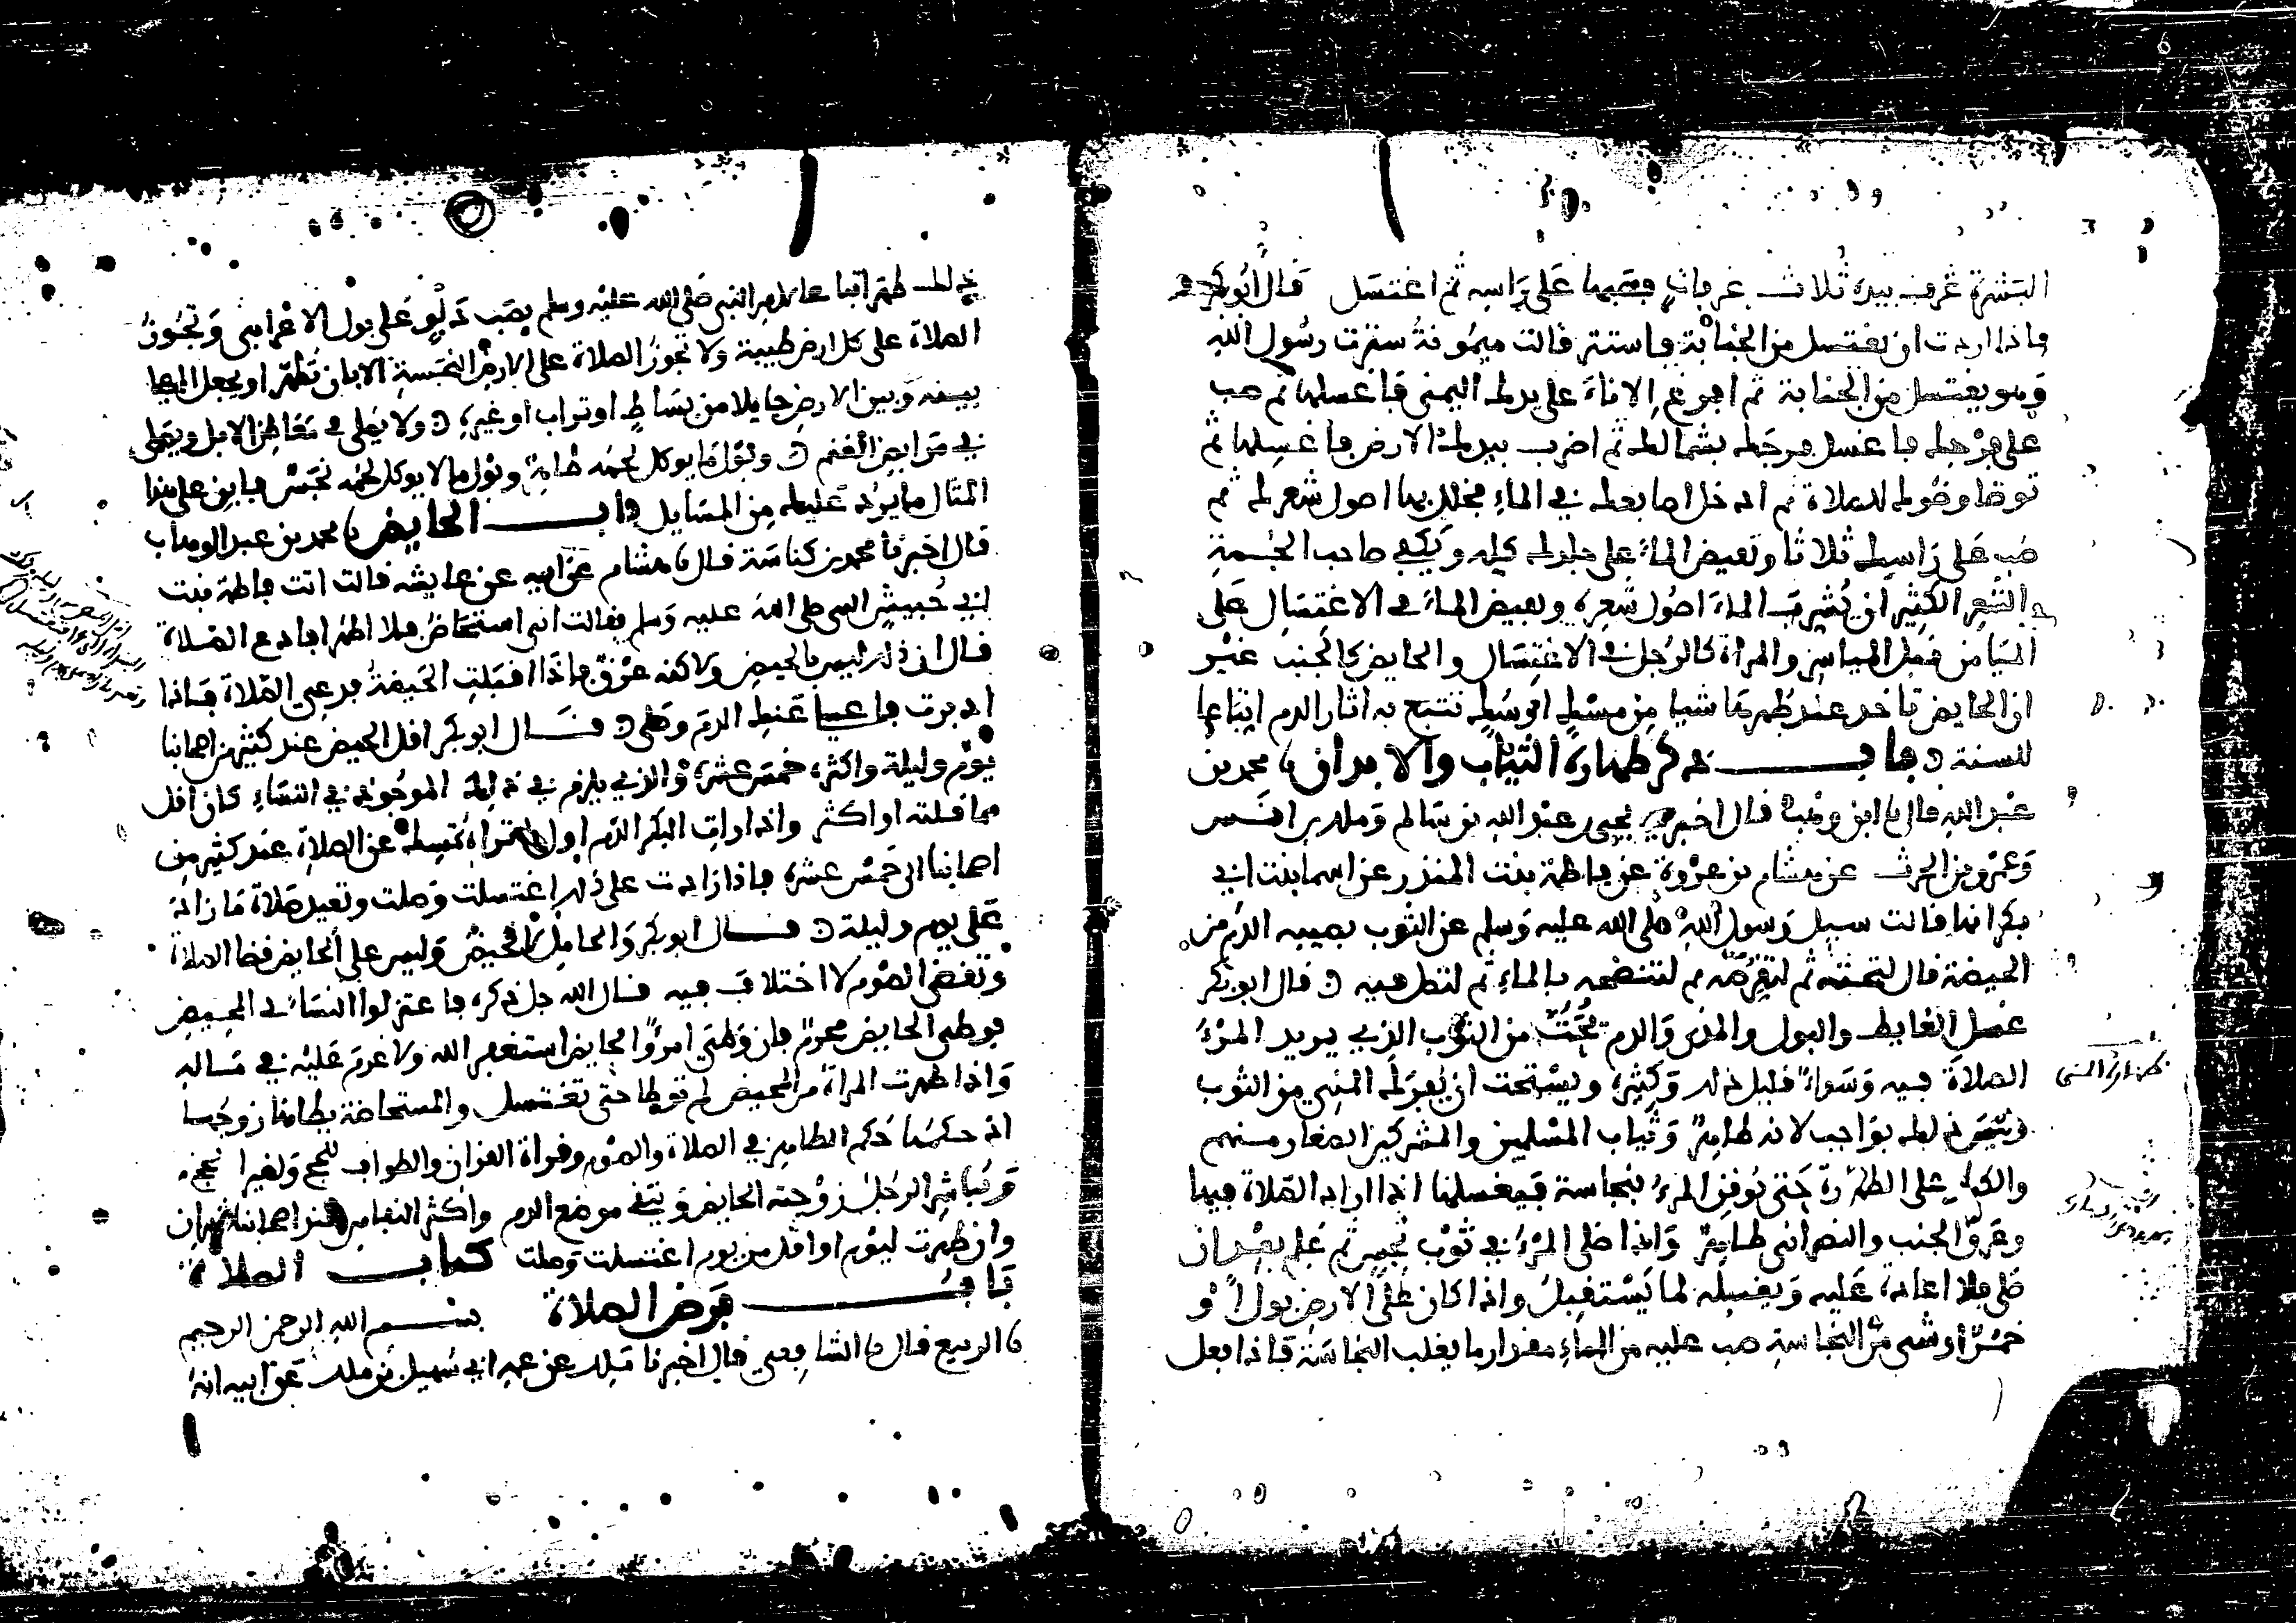 البشرة غرف بيده ثلاث غرفات فصبها على راسه ثم اغتسل قال أبو بكر
فاذا اردت ان تغتسل من الجنابة فاستتر قالت ميمونة سترت رسول الله
وهو يغتسل من الجنابة ثم افرغ الاناء على يدك اليمنى فاغسلها ثم صب
على فرجك فاغسل فرجك بشمالك ثم اضرب بيدك الارض فاغسلها ثم
توضا وضوك للصلاة ثم ادخل اصابعك في الماء فخلل بها اصول شعرك ثم
صب على راسك ثلاثا وتفيض الماء على جلدك كله ويكفي صاحب الجمة
والشعر الكثير ان يشرب الماء اصول شعره ويفيض الماء في الاغتسال على
الميامن قبل المياسر والمراة كالرجل في الاغتسال والحايض كالجنب غير
ان الحايض تاخذ عند طهرها شيا من مسك او سك تتبع به اثار الدم اتباعا
للسنة باب ذكر طهارة الثياب والابدان محمد بن
عبد الله قال ابن وهب قال اخبرني يحيى بن عبد الله بن سالم وملك بن انس
وعمرو بن الحرث عن هشام بن عروة عن فاطمة بنت المنذر عن اسما بنت ابي
بكر انها قالت سيل رسول الله صلى الله عليه وسلم عن الثوب يصيبه الدم من
الحيضة قال لتحته ثم لتقرصه ثم لتنضحه بالماء ثم لتصل فيه قال ابو بكر
غسل الغايط والبول والمذي والدم يجب من الثوب الذي يريد المرء
الصلاة فيه وسواء قليل ذلك وكثيره ويستحب ان يفرك المني من الثوب
وليس ذلك بواجب لانه طاهر وثياب المسلمين والمشركين الصغار منهم
والكبار على الطهارة حتى يوقن المرء بنجاسة فيغسلها اذا اراد الصلاة فيها
وعرق الجنب والنصراني طاهر واذا صلى المرء في ثوب نجس ثم علم بعد ان
صلى فلا اعادة عليه ويغسله لما يستقبل واذا كان على الارض بول او
خمر او شي من النجاسة صب عليه من الماء مقدار ما يغلب النجاسة فاذا فعل
طهارة المني
ذلك طهر اتباعا لامر النبي صلى الله عليه وسلم بصب دلو على بول الاعرابي وتجوز
الصلاة على كل ارض طيبة ولا تجوز الصلاة على الارض النجسة الا بان تطهر او يجعل المصلي
بينه وبين الارض حايلا من بساط او تراب او غيره ولا يصلى في معاطن الابل ويصلى
في مرابض الغنم وبول ما يوكل لحمه طاهر وبول ما لا يوكل لحمه نجس فابن على هذا
المثال ما يرد عليك من المسايل باب الحايض محمد بن عبد الوهاب
قال اخبرنا محمد بن كناسة قال هشام عن ابيه عن عايشه قالت اتت فاطمة بنت
ابي حبيش النبي صلى الله عليه وسلم فقالت اني استحاض فلا اطهر افادع الصلاة
قال ان ذلك ليس بالحيض ولاكنه عرق فاذا اقبلت الحيضة فدعي الصلاة فاذا
ادبرت فاغسلي عنك الدم وصلي قال ابو بكر اقل الحيض عند كثير من اصحابنا
يوم وليلة واكثره خمس عشرة والذي يلزم في ذلك الموجود في النساء كان اقل
مما قلته او اكثر واذا رات البكر الدم اول ما تراه تمسك عن الصلاة عند كثير من
اصحابنا الى خمس عشرة فاذا زادت على ذلك اغتسلت وصلت وتعيد صلاة ما زاد
على يوم وليلة قال ابو بكر والحامل لا تحيض وليس على الحايض قضا الصلاة
وتقضي الصوم لا اختلاف فيه قال الله جل ذكره فاعتزلوا النساء في المحيض
فوطي الحايض محرم فان وطي امرؤ الحايض استغفر الله ولا غرم عليه في ماله
واذا طهرت المراة من المحيض لم توطا حتى تغتسل والمستحاضة يطاها زوجها
اذ حكمها حكم الطاهر في الصلاة والصوم وقراة القران والطواف للحج ولغير الحج
ويباشر الرجل زوجته الحايض ويتقي موضع الدم واكثر النفاس عند اصحابنا شهران
وان طهرت ليوم او اقل من يوم اغتسلت وصلت كتاب الصلاة
باب فرض الصلاة بسم الله الرحمن الرحيم
الربيع قال الشافعي قال اخبرنا ملك عن عمه ابي سهيل بن ملك عن ابيه انه